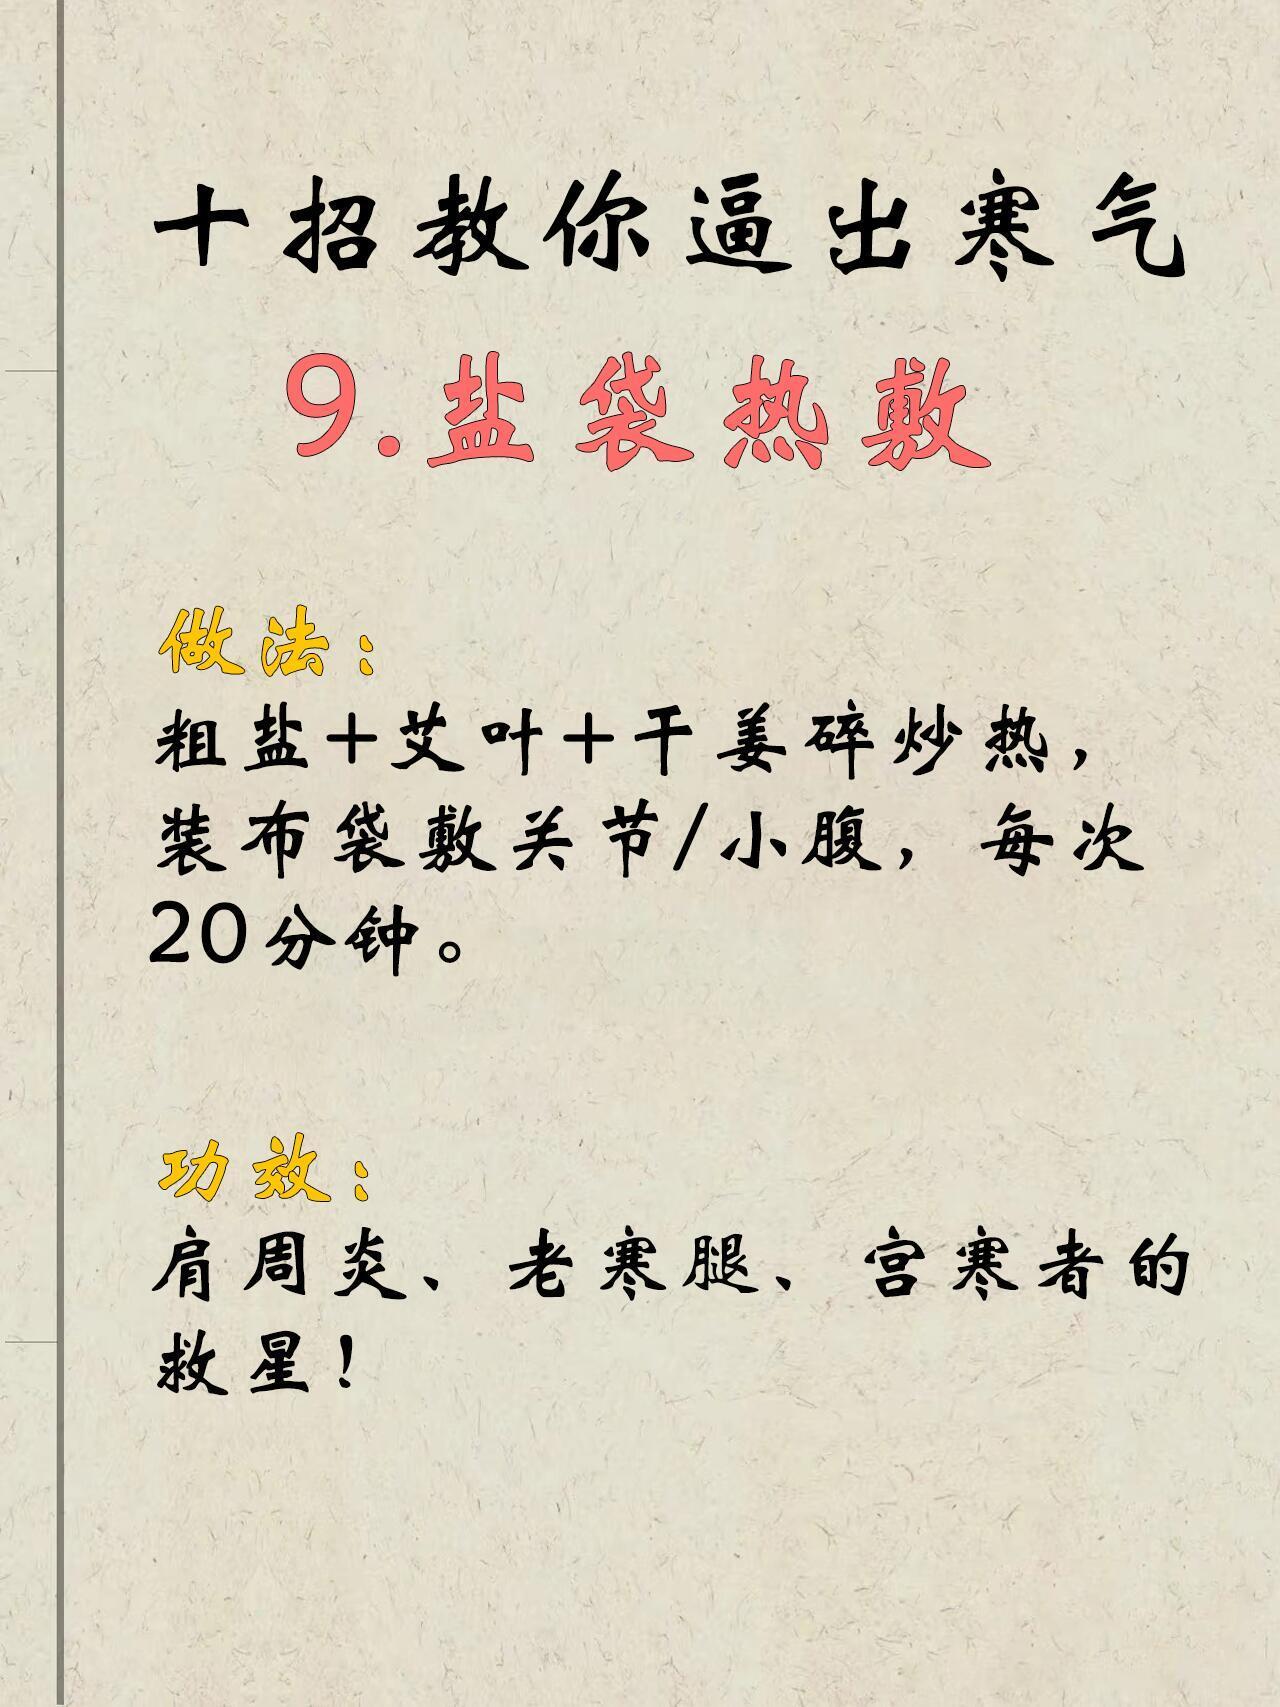 十招教你逼出寒气
9.盐袋热敷
做法：
粗盐+艾叶+干姜碎炒热，
装布袋敷关节/小腹，每次
20分钟。
功效：
肩周炎、老寒腿、宫寒者的
救星！